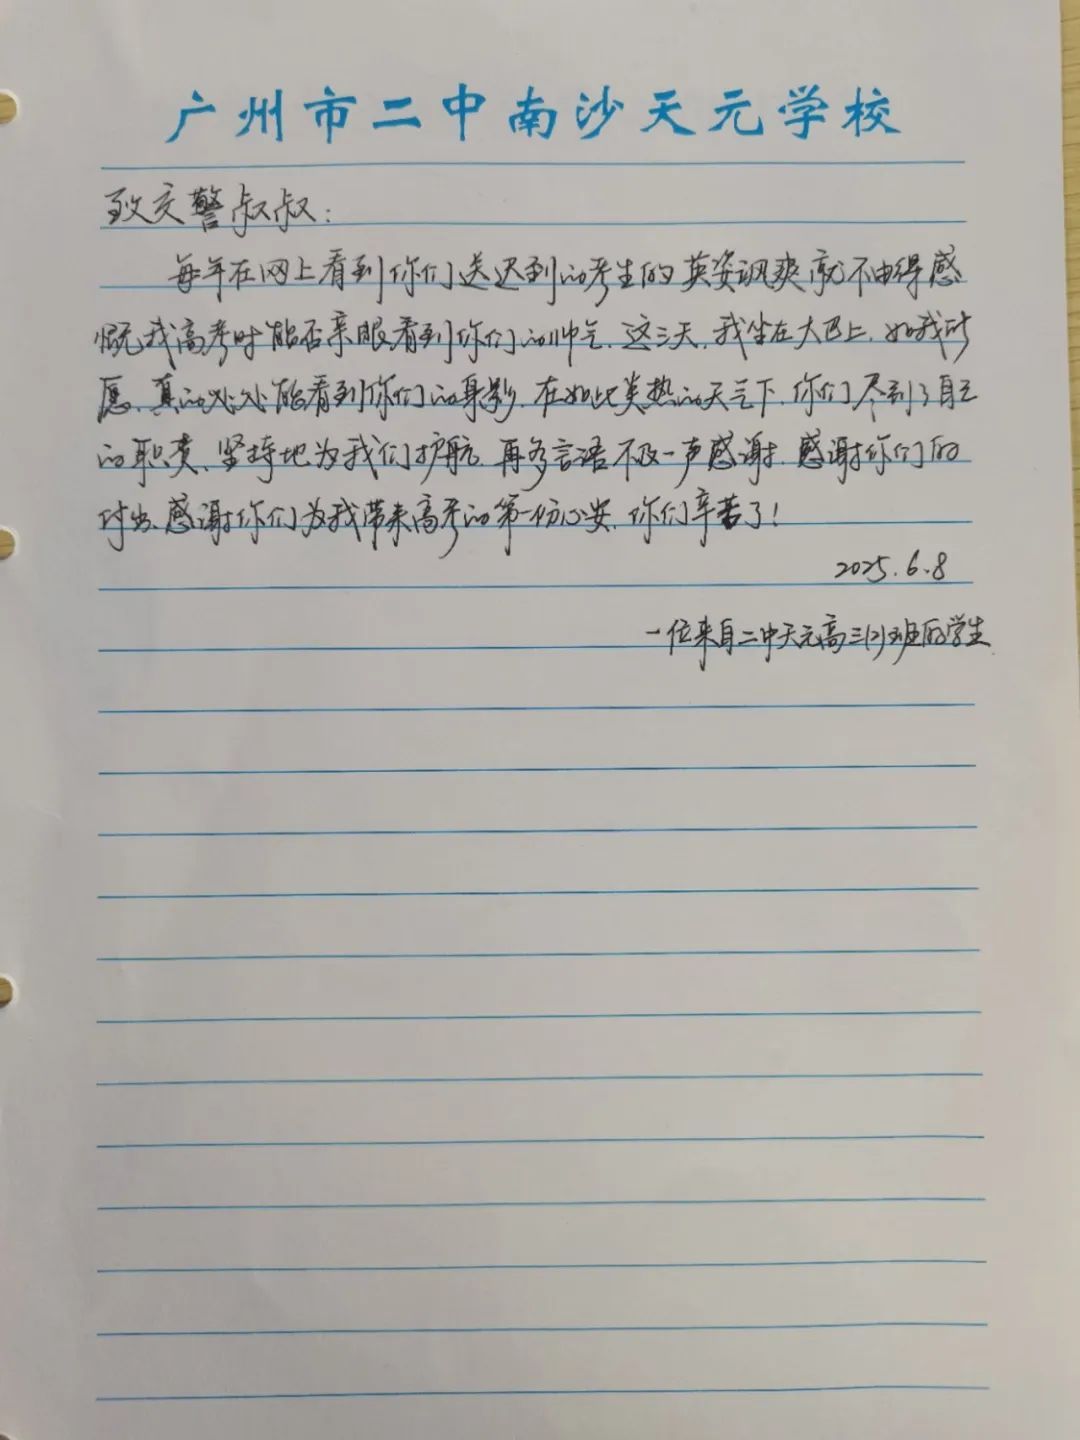 广州市二中南沙天元学校
致交警叔叔：
每年在网上看到你们送迟到的考生的英姿飒爽就不由得感
慨我高考时能否亲眼看到你们的帅气。这三天，我坐在大巴上，如我所
愿，真的处处能看到你们的身影，在如此炎热的天气下，你们尽到了自己
的职责，坚持地为我们护航，再多言语不及一声感谢，感谢你们的
付出，感谢你们为我带来高考的第一份心安，你们辛苦了！
2025.6.8
一位来自二中天元高三(2)班的学生